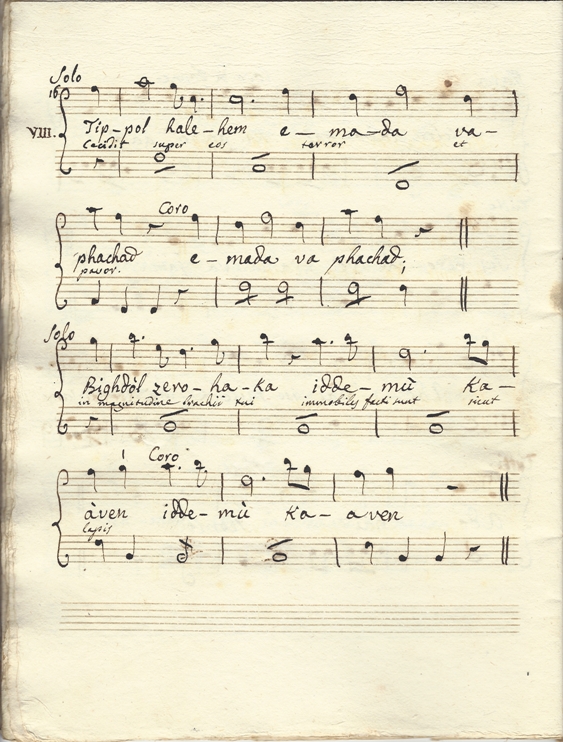 Solo
16
VIII. Tip-pol hale-hem e-ma-da va-
cecidit super eos terror et
Coro
phachad e-mada va phachad;
pavor.
Solo
Bighdòl zero-ha-ka idde-mù ka-
in magnitudine brachii tui immobiles facti sunt sicut
Coro
àven idde-mù ka-aven
lapis